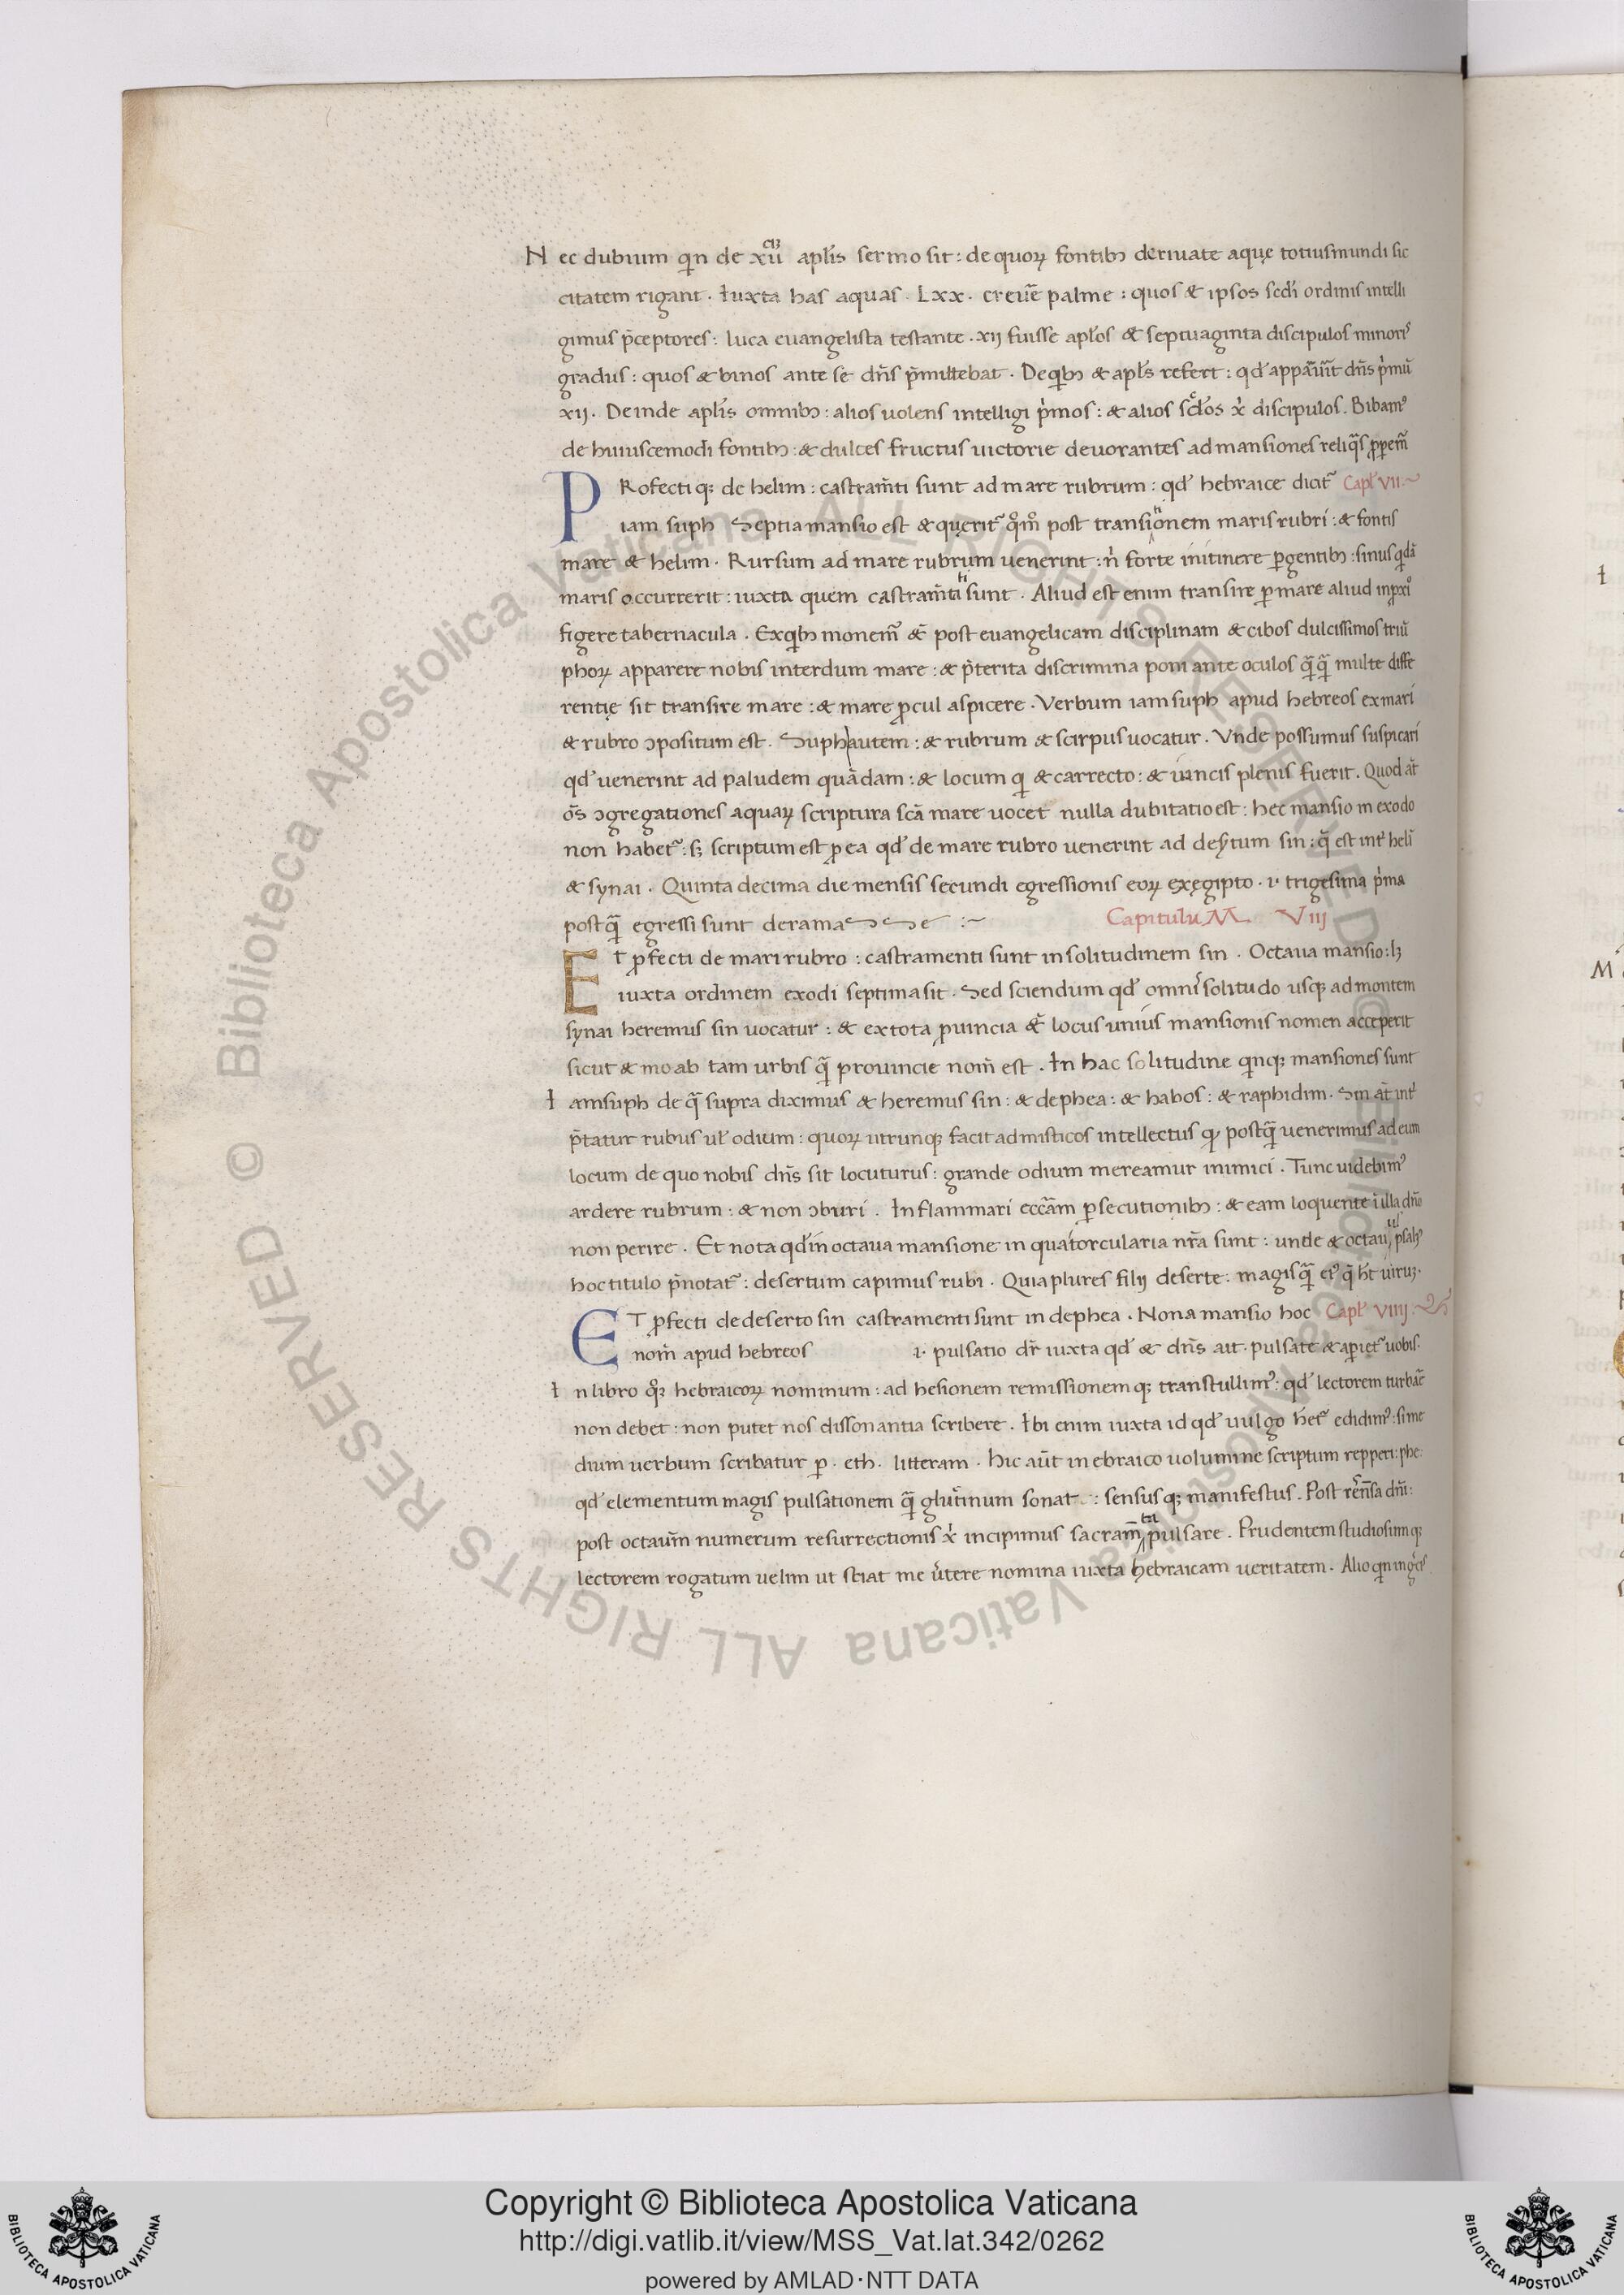 Nec dubium qin de xíí aplis sermo sit: de quoꝝ fontibꝫ deriuate aquę totius mundi sic
citatem rigant. Iuxta has aquas. Lxx. creuē palme: quos & ipsos scdi ordinis intelli
gimus p̄ceptores: luca euangelista testante. xij fuisse aplos & septuaginta discipulos minoris
gradus: quos & binos ante se dn̄s p̄mittebat. De qibꝫ & apls refert: qd' apparuit dn̄s pͥmū
xij. Deinde aplis omnibꝫ: alios uolens intelligi pͥmos: & alios scdos xͥ discipulos. Bibamꝰ
de huiuscemodi fontibꝫ: & dulces fructus uictorie deuorantes ad mansiones reliqas
PRofecti qꝫ de helim: castram̄ti sunt ad mare rubrum: qd' hebraice dicit᷑ Capl' VII.
iam suph Septia mansio est & querit᷑ qͦmͦ post transionem maris rubri: & fontis
mare & helim. Rursum ad mare rubrum uenerint: nͥ forte initinere ꝑgentibꝫ: sinus qdā
maris occurrerit: iuxta quem castram̄ti sunt. Aliud est enim transire ꝑ mare aliud
figere tabernacula. Ex qibꝫ monem᷑ & post euangelicam disciplinam & cibos dulcissimos triū
phoꝝ apparere nobis interdum mare: & p̄terita discrimina poni ante oculos qᷓqᷓ multe diffe
rentię sit transire mare: & mare ꝓcul aspicere. Verbum iam suph apud hebreos ex mari
& rubro ꝯpositum est. Suph autem: & rubrum & scirpus uocatur. Vnde possumus suspicari
qd' uenerint ad paludem quādam: & locum qi & carrecto: & iuncis plenis fuerit. Quod at̄
oс̄s ꝯgregationes aquaꝝ scriptura scā mare uocet nulla dubitatio est: hec mansio in exodo
non habet᷑: sꝫ scriptum est ꝓ ea qd' de mare rubro uenerint ad deſtum sin: qᷓ est intͥ heli
& synai. Quinta decima die mensis secundi egressionis eoꝝ exęgipto. i. trigesima pͥma
postqᷓ egressi sunt de ramasse :~ CapituluM Viij
Et ꝓfecti de mari rubro: castramenti sunt in solitudinem sin. Octaua mansio: lꝫ
iuxta ordinem exodi septima sit. Sed sciendum qd' omniſ solitudo usqꝫ ad montem
synai heremus sin uocatur: & ex tota ꝓuincia & locus unius mansionis nomen acceperit
sicut & moab tam urbis qᷓ prouincie nom̄ est. In hac solitudine qinqꝫ mansiones sunt
Iamsuph de qᷓ supra diximus & heremus sin: & dephea: & habos: & raphidim. Sin at̄ intͥ
p̄tatur rubus ul' odium: quoꝝ utrunqꝫ facit ad misticos intellectus qꝫ postqᷓ uenerimus ad eum
locum de quo nobis dn̄s sit locuturus: grande odium mereamur inimici. Tunc uidebimꝰ
ardere rubrum: & non ꝯburi. Inflammari eccām ꝑsecutionibꝫ: & eam loquente ī illa dn̄o
non perire. Et nota qd' in octaua mansione in qua torcularia nr̄a sunt: unde & octauꝰ psalmꝰ
hoc titulo p̄notat᷑: desertum capimus rubi. Quia plures filij deserte: magis qᷓ eiꝰ qᷓ ht uirum.
ET ꝓfecti de deserto sin castramenti sunt in dephea. Nona mansio hoc Capl' VIIIJ.
nom̄ apud hebreos i. pulsatio dr̄ iuxta qd' & dn̄s ait. pulsate & apiet᷑ uobis.
In libro qꝫ hebraicoꝝ nominum: ad hesionem remissionem qꝫ transtullimꝰ: qd' lectorem turbare
non debet: non putet nos dissonantia scribere. Ibi enim iuxta id qd' uulgo het᷑ edidimꝰ: si me
dium uerbum scribatur ꝑ. eth. litteram. hic aūt in ebraico uolumine scriptum repperi: phe:
qd' elementum magis pulsationem qᷓ glutinum sonat: sensus qꝫ manifestus. Post dn̄i:
post octauū numerum resurrectionis xͥ incipimus sacram̄ta pulsare. Prudentem studiosum qꝫ
lectorem rogatum uelim ut sciat me ūtere nomina iuxta hebraicam ueritatem. Alio qin in grecis
© Biblioteca Apostolica Vaticana ALL RIGHTS RESERVED © Biblioteca Apostolica Vaticana ALL RIGHTS RESERVED
Copyright © Biblioteca Apostolica Vaticana
http://digi.vatlib.it/view/MSS_Vat.lat.342/0262
powered by AMLAD·NTT DATA
BIBLIOTECA APOSTOLICA VATICANA
BIBLIOTECA APOSTOLICA VATICANA